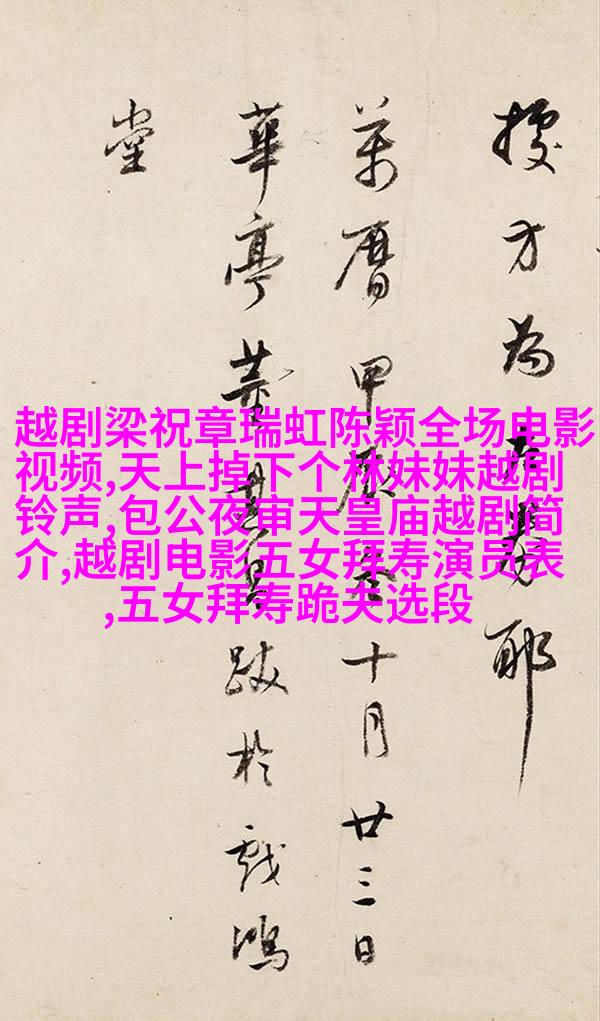 越剧梁祝章瑞虹陈颖全场电影
视频,天上掉下个林妹妹越剧
铃声,包公夜审天皇庙越剧简
介,越剧电影五女拜寿演员表
,五女拜寿跪夫选段
方為耶
萬曆甲辰冬十月廿三日
華亭董其昌跋於戲鴻
堂